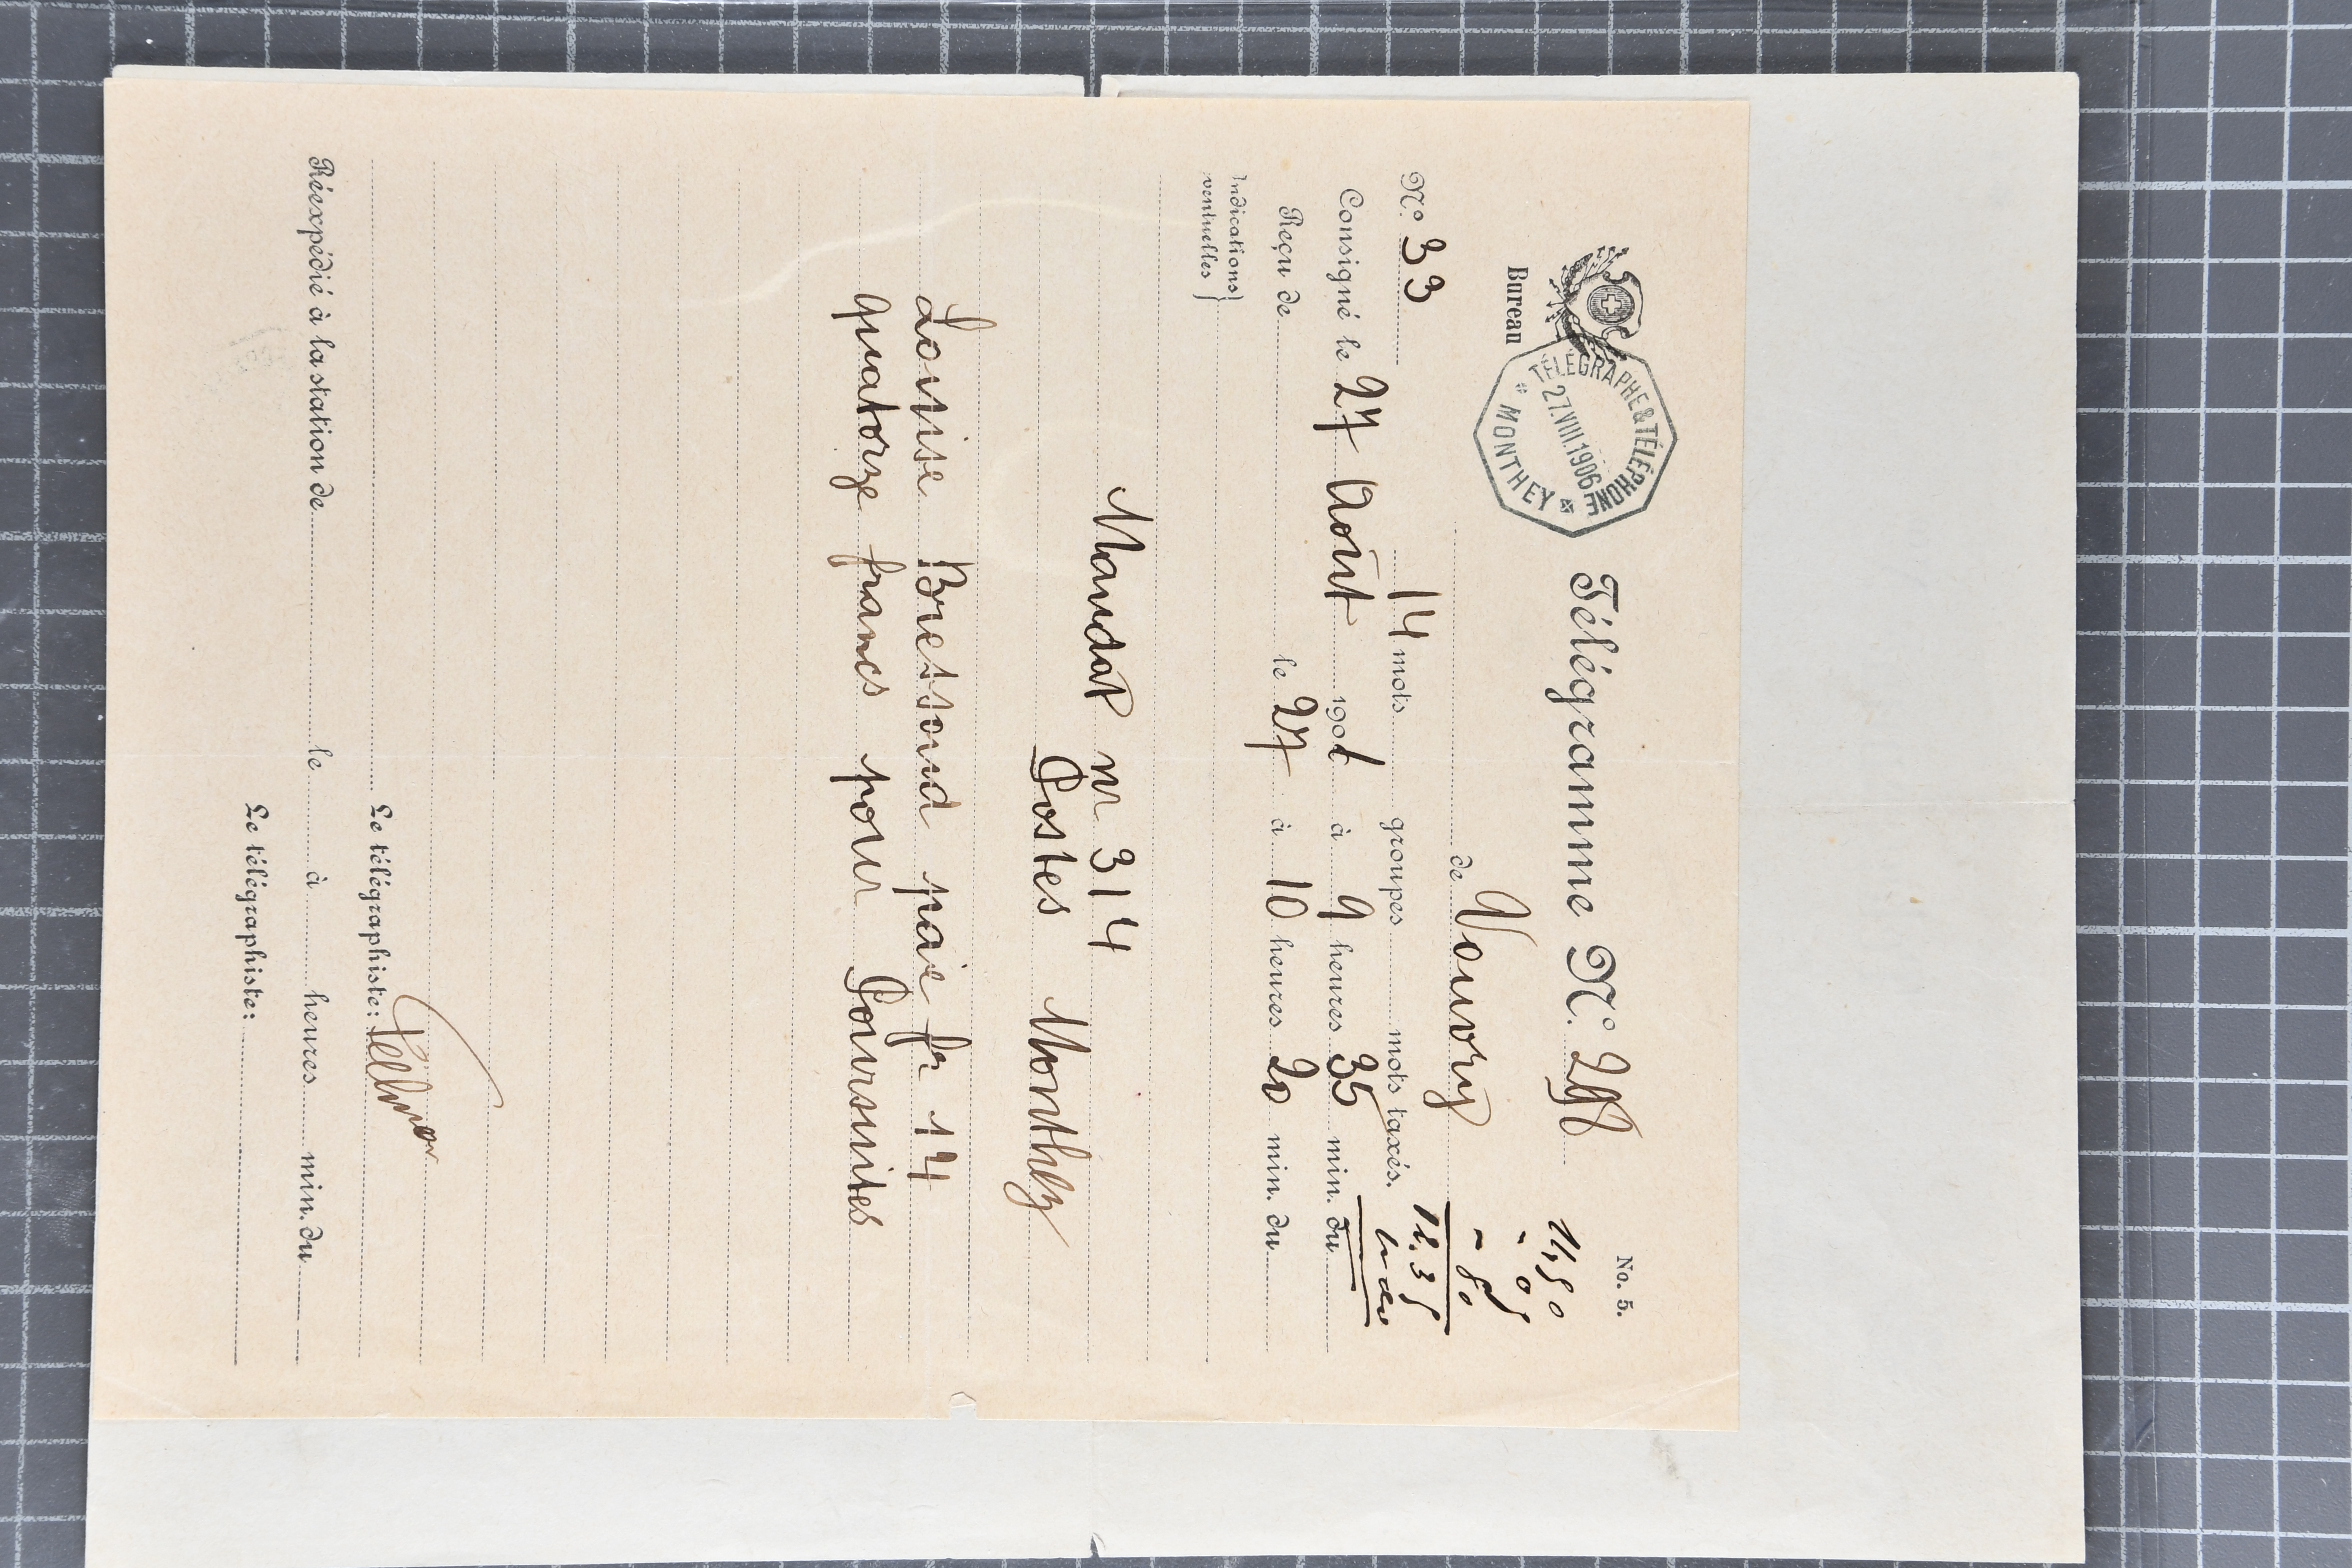 No. 5.
Télégramme No.
Bureau
TÉLÉGRAPHE & TÉLÉPHONE
27.VIII.1906
* MONTHEY *
de Vouvry
No. 33 14 mots groupes mots taxés.
Consigné le 27 Août 190 à 9 heures 35 min. du
Reçu de le 27 à 10 heures 20 min. du
Indications
ventuelles
Mandat nr 314
Postes Monthey
Louise Bressoud paie fr 14
quatorze francs pour Poursuites
Le télégraphiste:
Réexpédié à la station de le à heures min. du
Le télégraphiste: